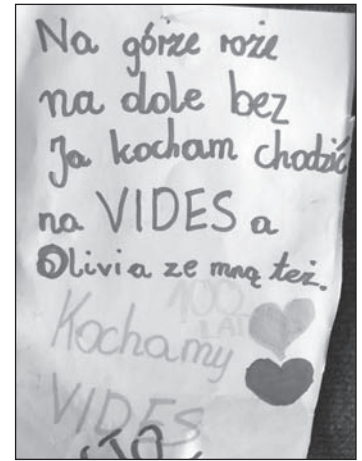 Na górze roże
na dole bez
Ja kocham chodzić
na VIDES a
Olivia ze mną też.
100
LAT
Kochamy
VIDES